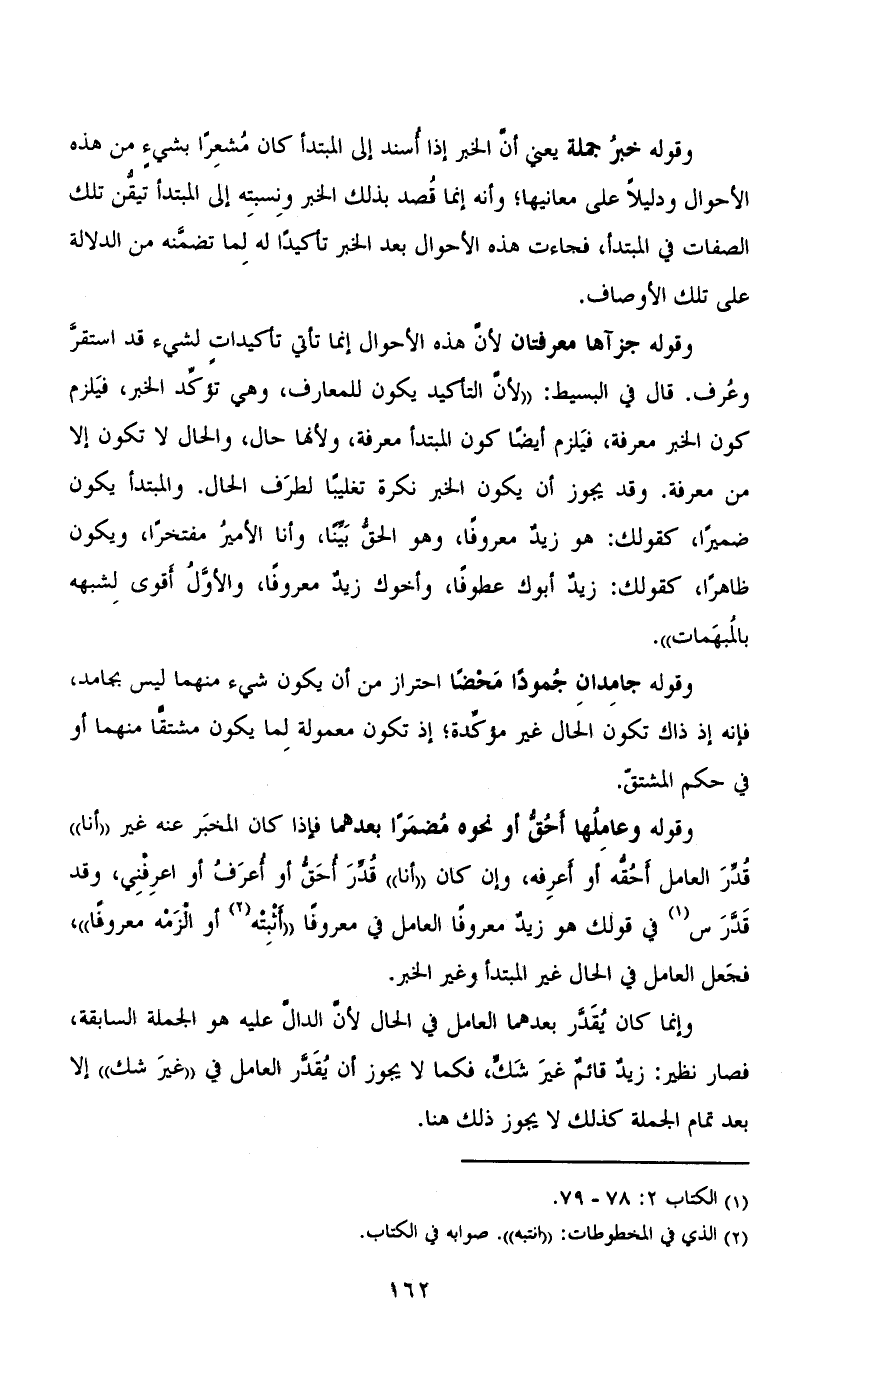 وقوله خبرُ جملة يعني أنَّ الخبر إذا أُسند إلى المبتدأ كان مُشعِرًا بشيءٍ من هذه
الأحوال ودليلاً على معانيها؛ وأنه إنما قُصد بذلك الخبر ونِسبتِه إلى المبتدأ تيقُّن تلك
الصفات في المبتدأ، فجاءت هذه الأحوال بعد الخبر تأكيدًا له لِما تضمَّنه من الدلالة
على تلك الأوصاف.
وقوله جزآها معرفتان لأنَّ هذه الأحوال إنما تأتي تأكيداتٍ لشيء قد استقرَّ
وعُرف. قال في البسيط: ((لأنَّ التأكيد يكون للمعارف، وهي تؤكِّد الخبر، فيَلزم
كون الخبر معرفة، فيَلزم أيضًا كون المبتدأ معرفة، ولأنها حال، والحال لا تكون إلا
من معرفة. وقد يجوز أن يكون الخبر نكرة تغليبًا لطرَف الحال. والمبتدأ يكون
ضميرًا، كقولك: هو زيدٌ معروفًا، وهو الحقُّ بَيِّنًا، وأنا الأميرُ مفتخرًا، ويكون
ظاهرًا، كقولك: زيدٌ أبوك عطوفًا، وأخوك زيدٌ معروفًا، والأوَّلُ أَقوى لِشبهه
بالُمبهَمات)).
وقوله جامِدانِ جُمودًا مَحْضًا احتراز من أن يكون شيء منهما ليس بجامد،
فإنه إذ ذاك تكون الحال غير مؤكِّدة؛ إذ تكون معمولة لِما يكون مشتقًّا منهما أو
في حكم المشتقّ.
وقوله وعامِلُها أَحُقُّ أو نحوه مُضمَرًا بعدهما فإذا كان المخبَر عنه غير ((أنا))
قُدِّرَ العامل أَحُقُّه أو أَعرِفه، وإن كان ((أنا)) قُدِّرَ أُحَقُّ أو أُعرَفُ أو اعرِفْني، وقد
قَدَّرَ س(١) في قولك هو زيدٌ معروفًا العامل في معروفًا ((أَثْبِتْه(٢) أو الْزَمْه معروفًا))،
فجَعل العامل في الحال غير المبتدأ وغير الخبر.
وإنما كان يُقَدَّر بعدهما العامل في الحال لأنَّ الدالّ عليه هو الجملة السابقة،
فصار نظير: زيدٌ قائمٌ غيرَ شَكٍّ، فكما لا يجوز أن يُقدَّر العامل في ((غيرَ شك)) إلا
بعد تمام الجملة كذلك لا يجوز ذلك هنا.
(١) الكتاب ٢: ٧٨ - ٧٩.
(٢) الذي في المخطوطات: ((انتبه)). صوابه في الكتاب.
١٦٢